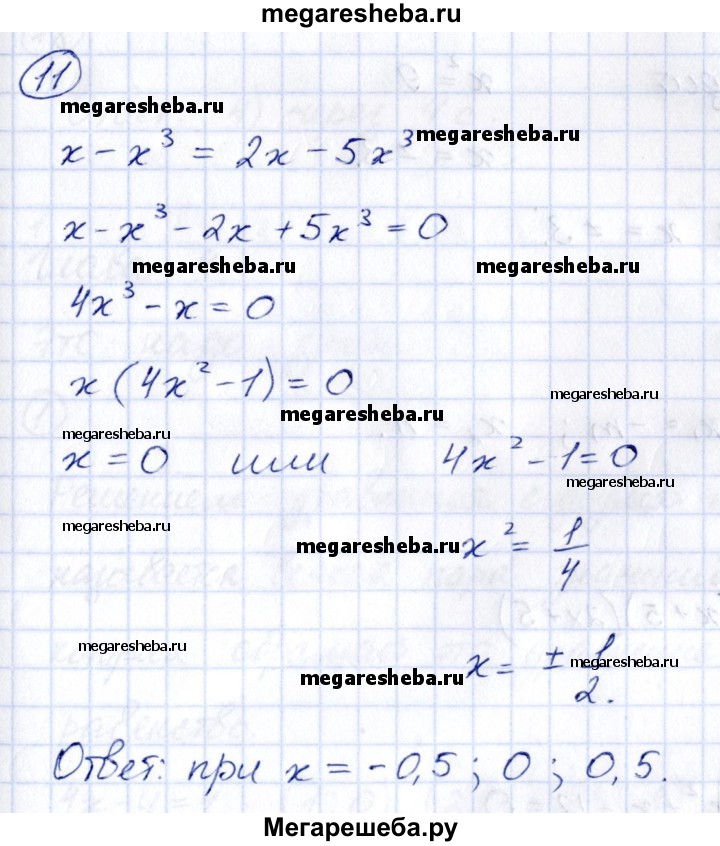 megaresheba.ru
11
megaresheba.ru
x - x³ = 2x - 5x³
megaresheba.ru
x - x³ - 2x + 5x³ = 0
megaresheba.ru megaresheba.ru
4x³ - x = 0
x (4x² - 1) = 0
megaresheba.ru
megaresheba.ru
megaresheba.ru
x = 0 или 4x² - 1 = 0
megaresheba.ru
megaresheba.ru
megaresheba.ru x² = 1/4
megaresheba.ru
megaresheba.ru
megaresheba.ru x = ± 1/2.
Ответ: при x = -0,5; 0; 0,5.
Мегарешеба.ру